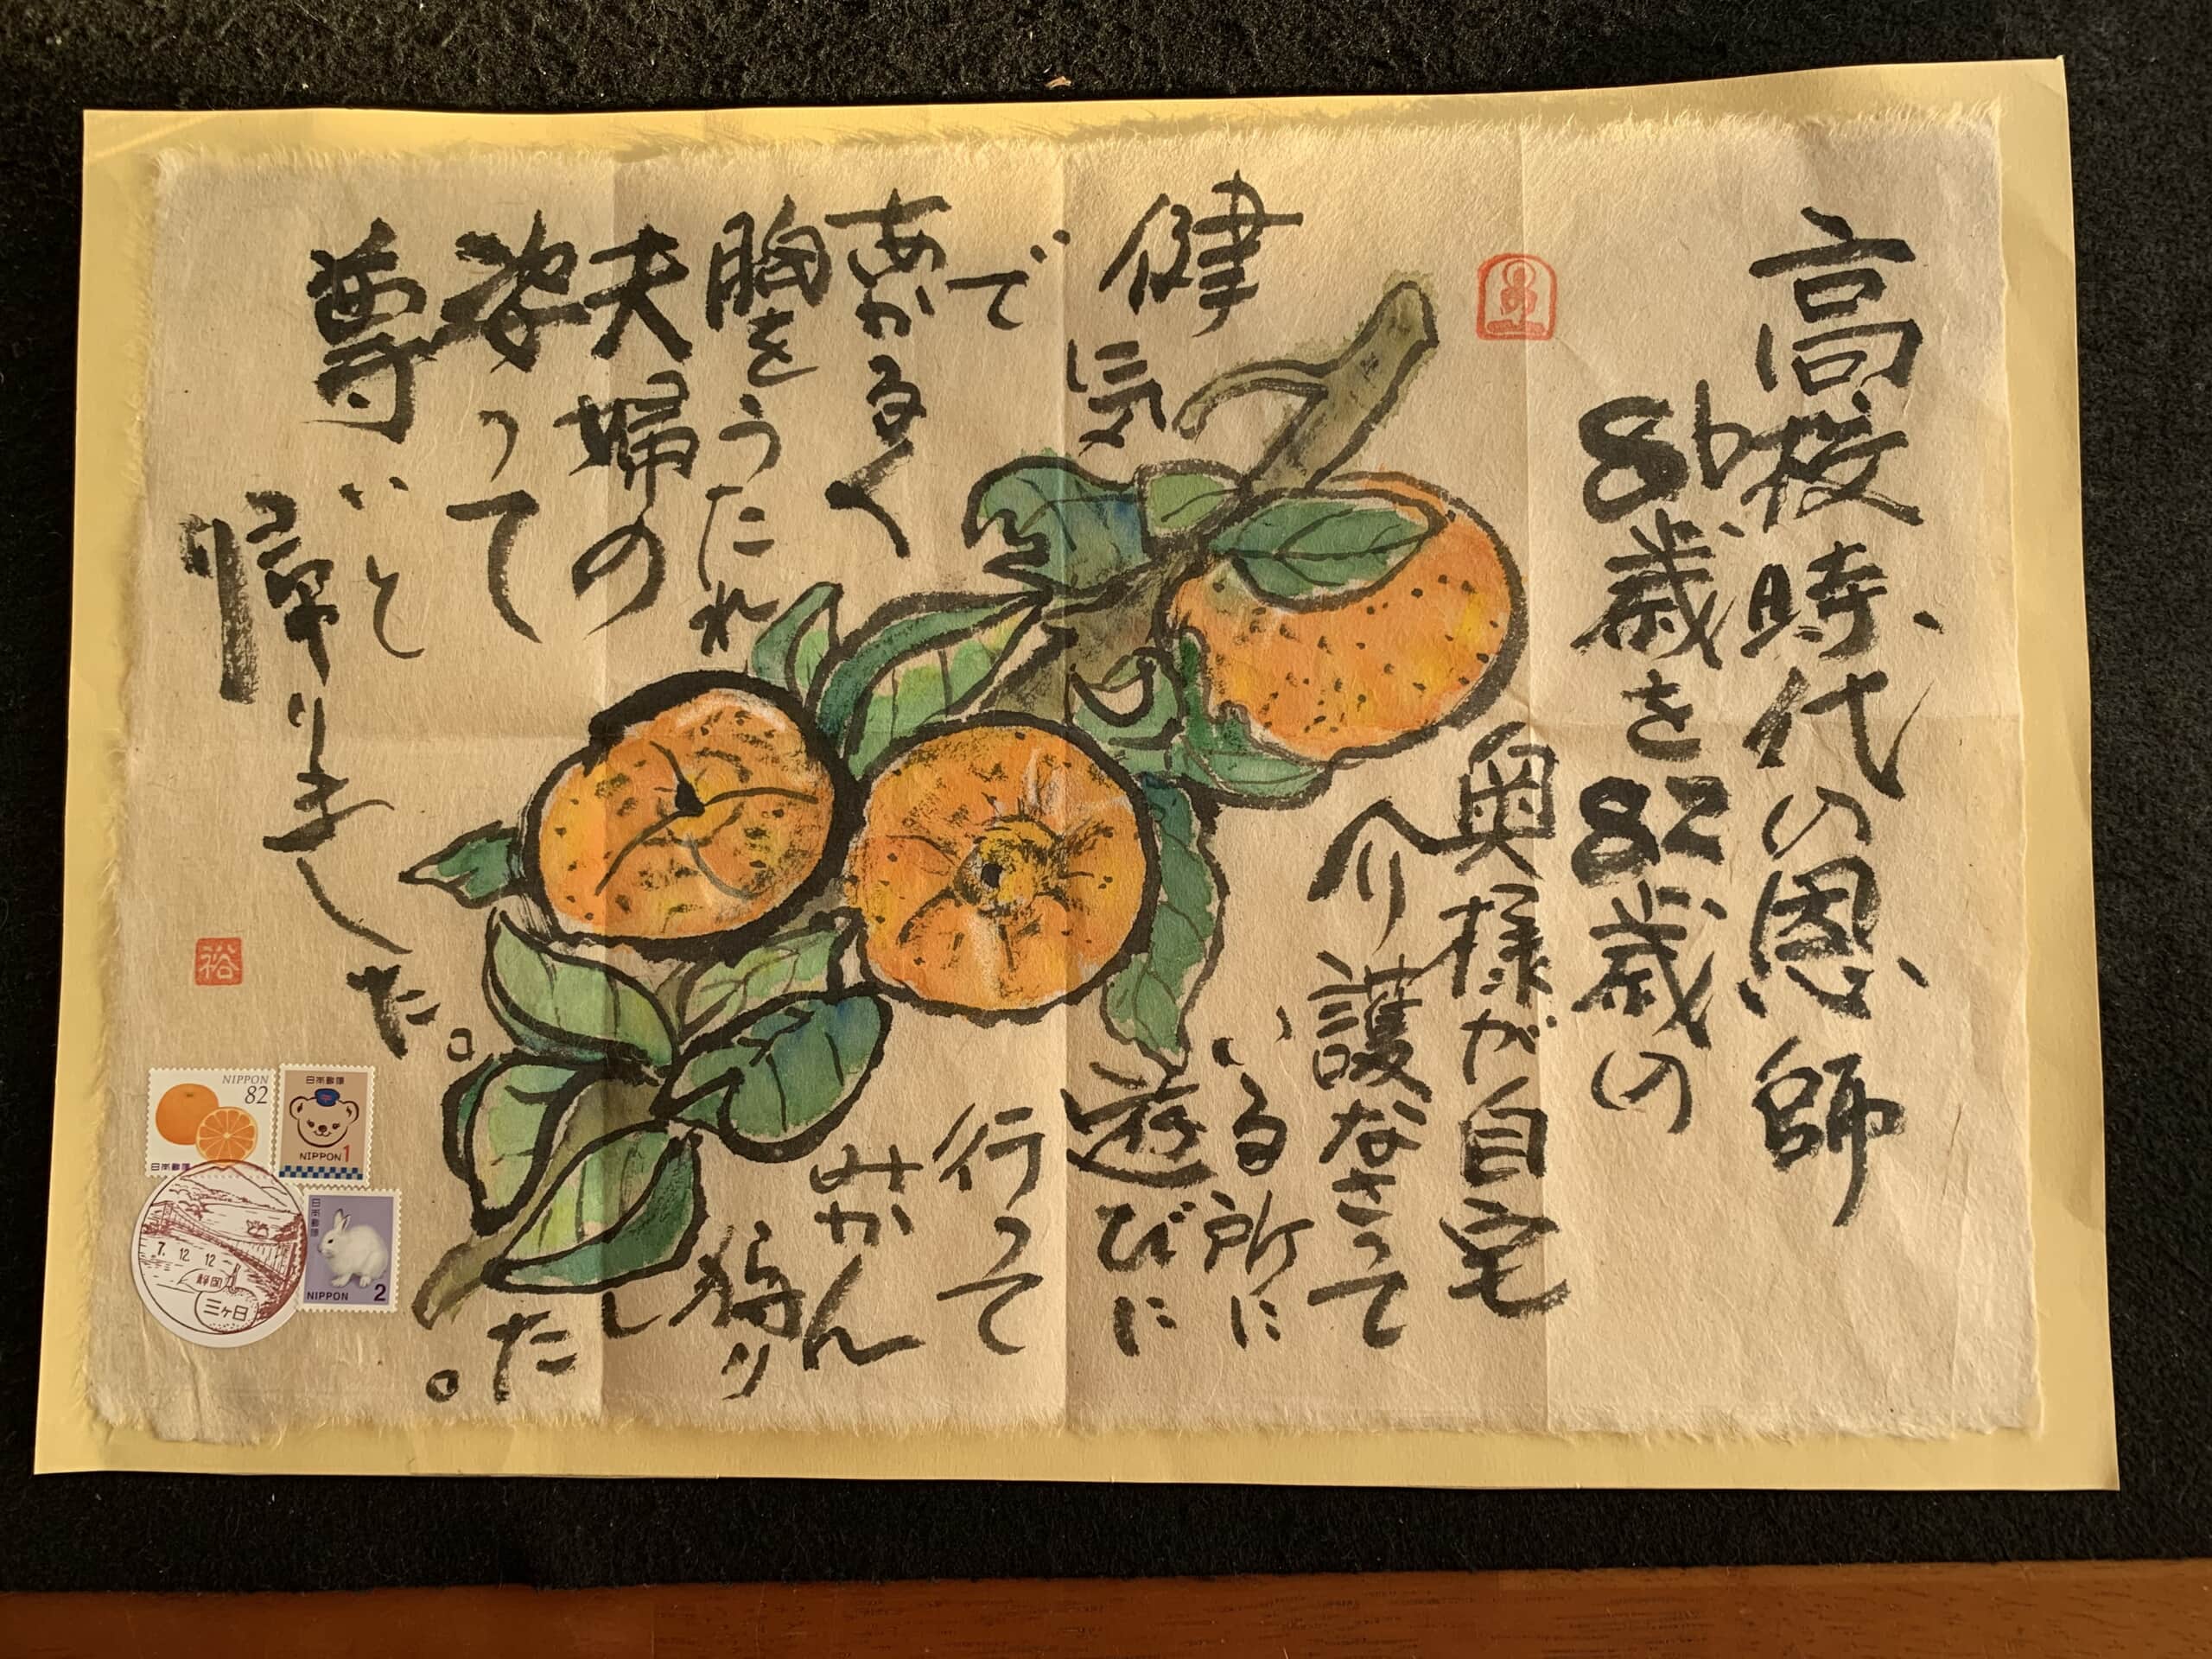 高校時代の恩師
86歳を82歳の
奥様が自宅
介護なさって
いる所に
遊びに
行って
みかん
狩り
し
た。
健気
で
あかるく
胸をうたれ
夫婦の
姿って
尊いと
帰りました。
裕
NIPPON
82
日本郵便
日本郵便
NIPPON 1
日本郵便
NIPPON 2
7.12.12
静岡
三ヶ日